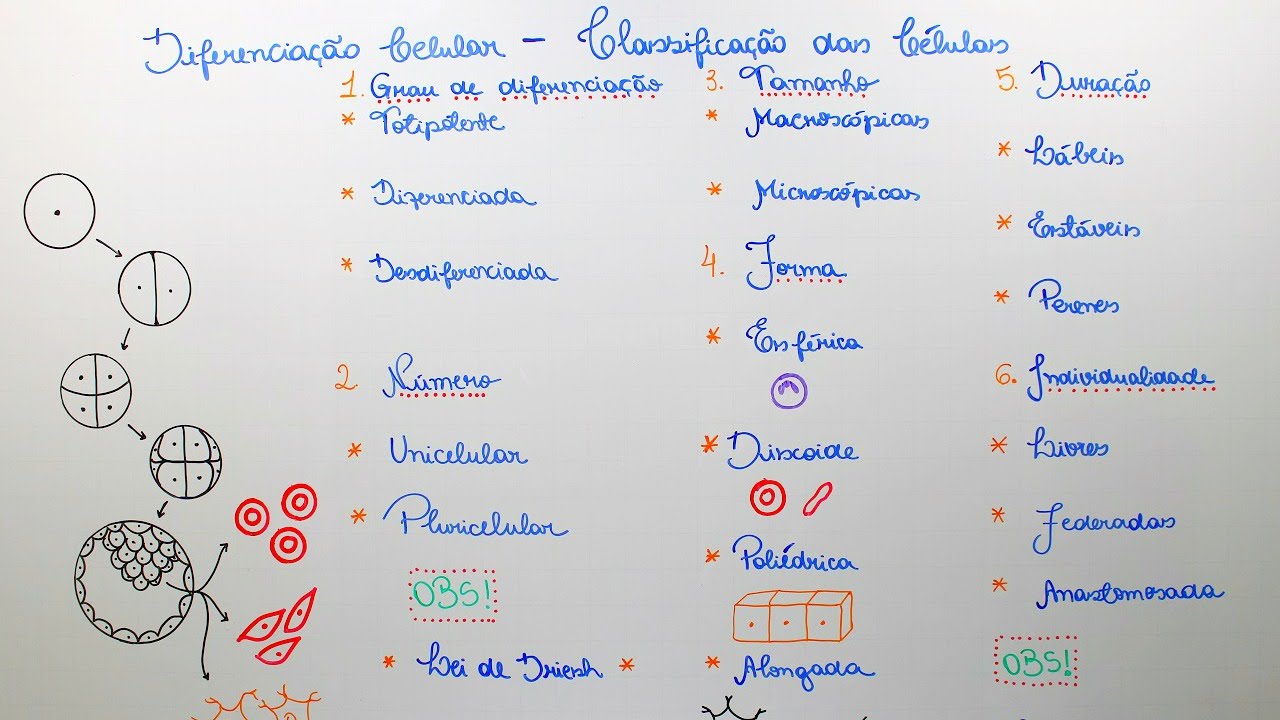 Diferenciação Celular - Classificação das Células
1. Grau de diferenciação
* Totipotente
* Diferenciada
* Desdiferenciada
2. Número
* Unicelular
* Pluricelular
OBS!
* Lei de Driesh *
3. Tamanho
* Macroscópicas
* Microscópicas
4. Forma
* Esférica
* Discoide
* Poliédrica
* Alongada
5. Duração
* Lábeis
* Estáveis
* Perenes
6. Individualidade
* Livres
* Federadas
* Anastomosada
OBS!